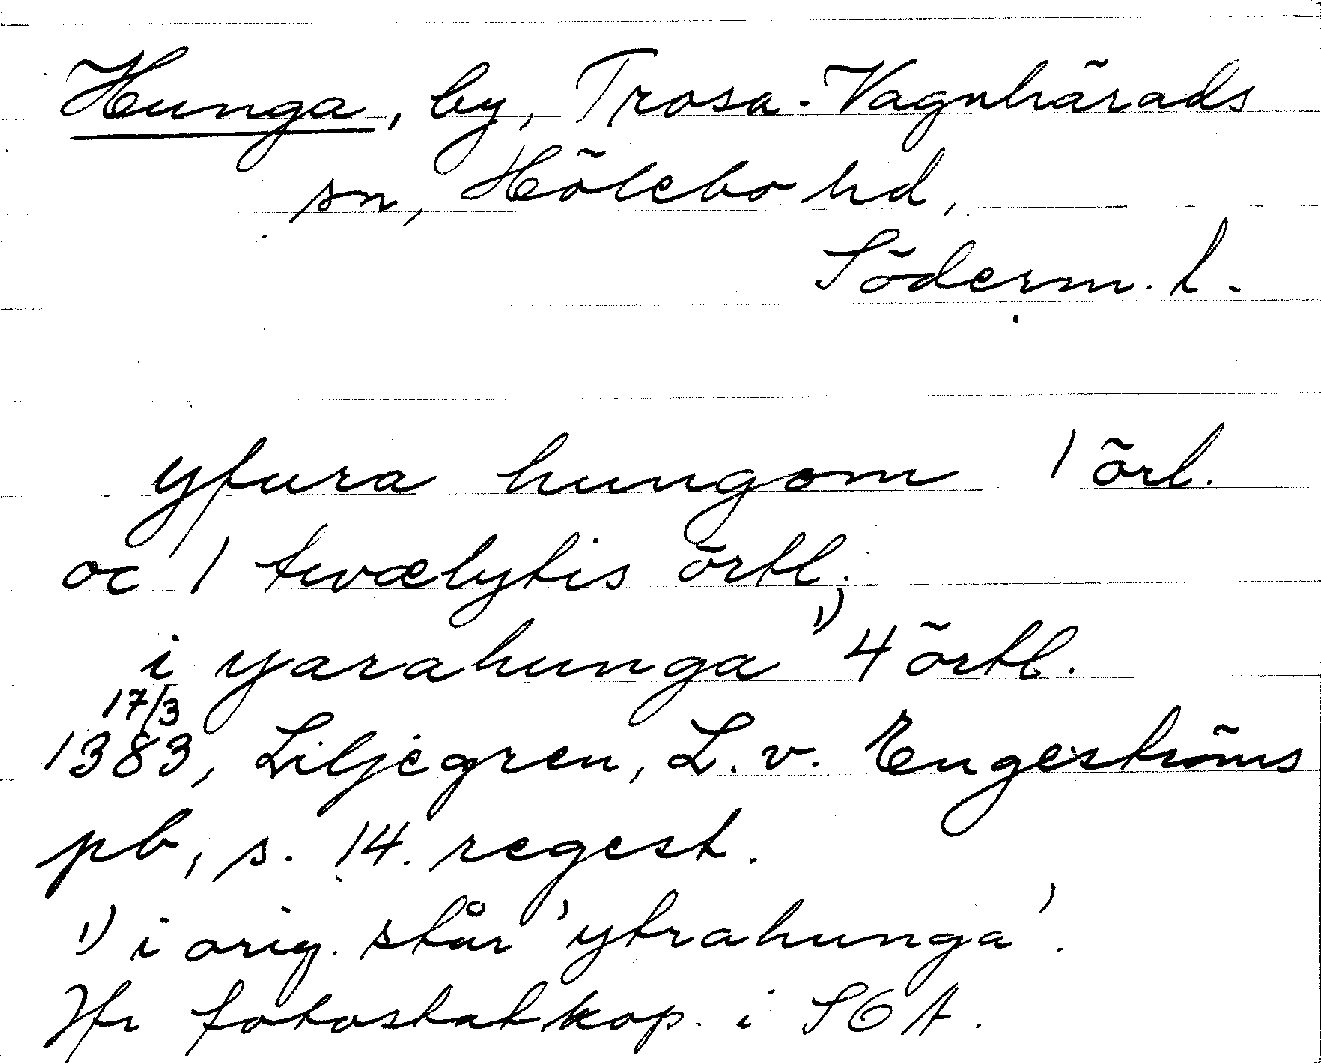 Hunga, by, Trosa-Vagnhärads
sn, Hölebo hd,
Söderm. l.
yfura hungom 1 örl.
oc 1 twælytis örtl;
i yarahunga¹⁾ 4 örtl.
17/3
1383, Liljegren, L. v. Engeströms
pb, s. 14. regest.
¹⁾ i orig. står 'ytrahunga'.
Jfr fotostatkop. i SOA.